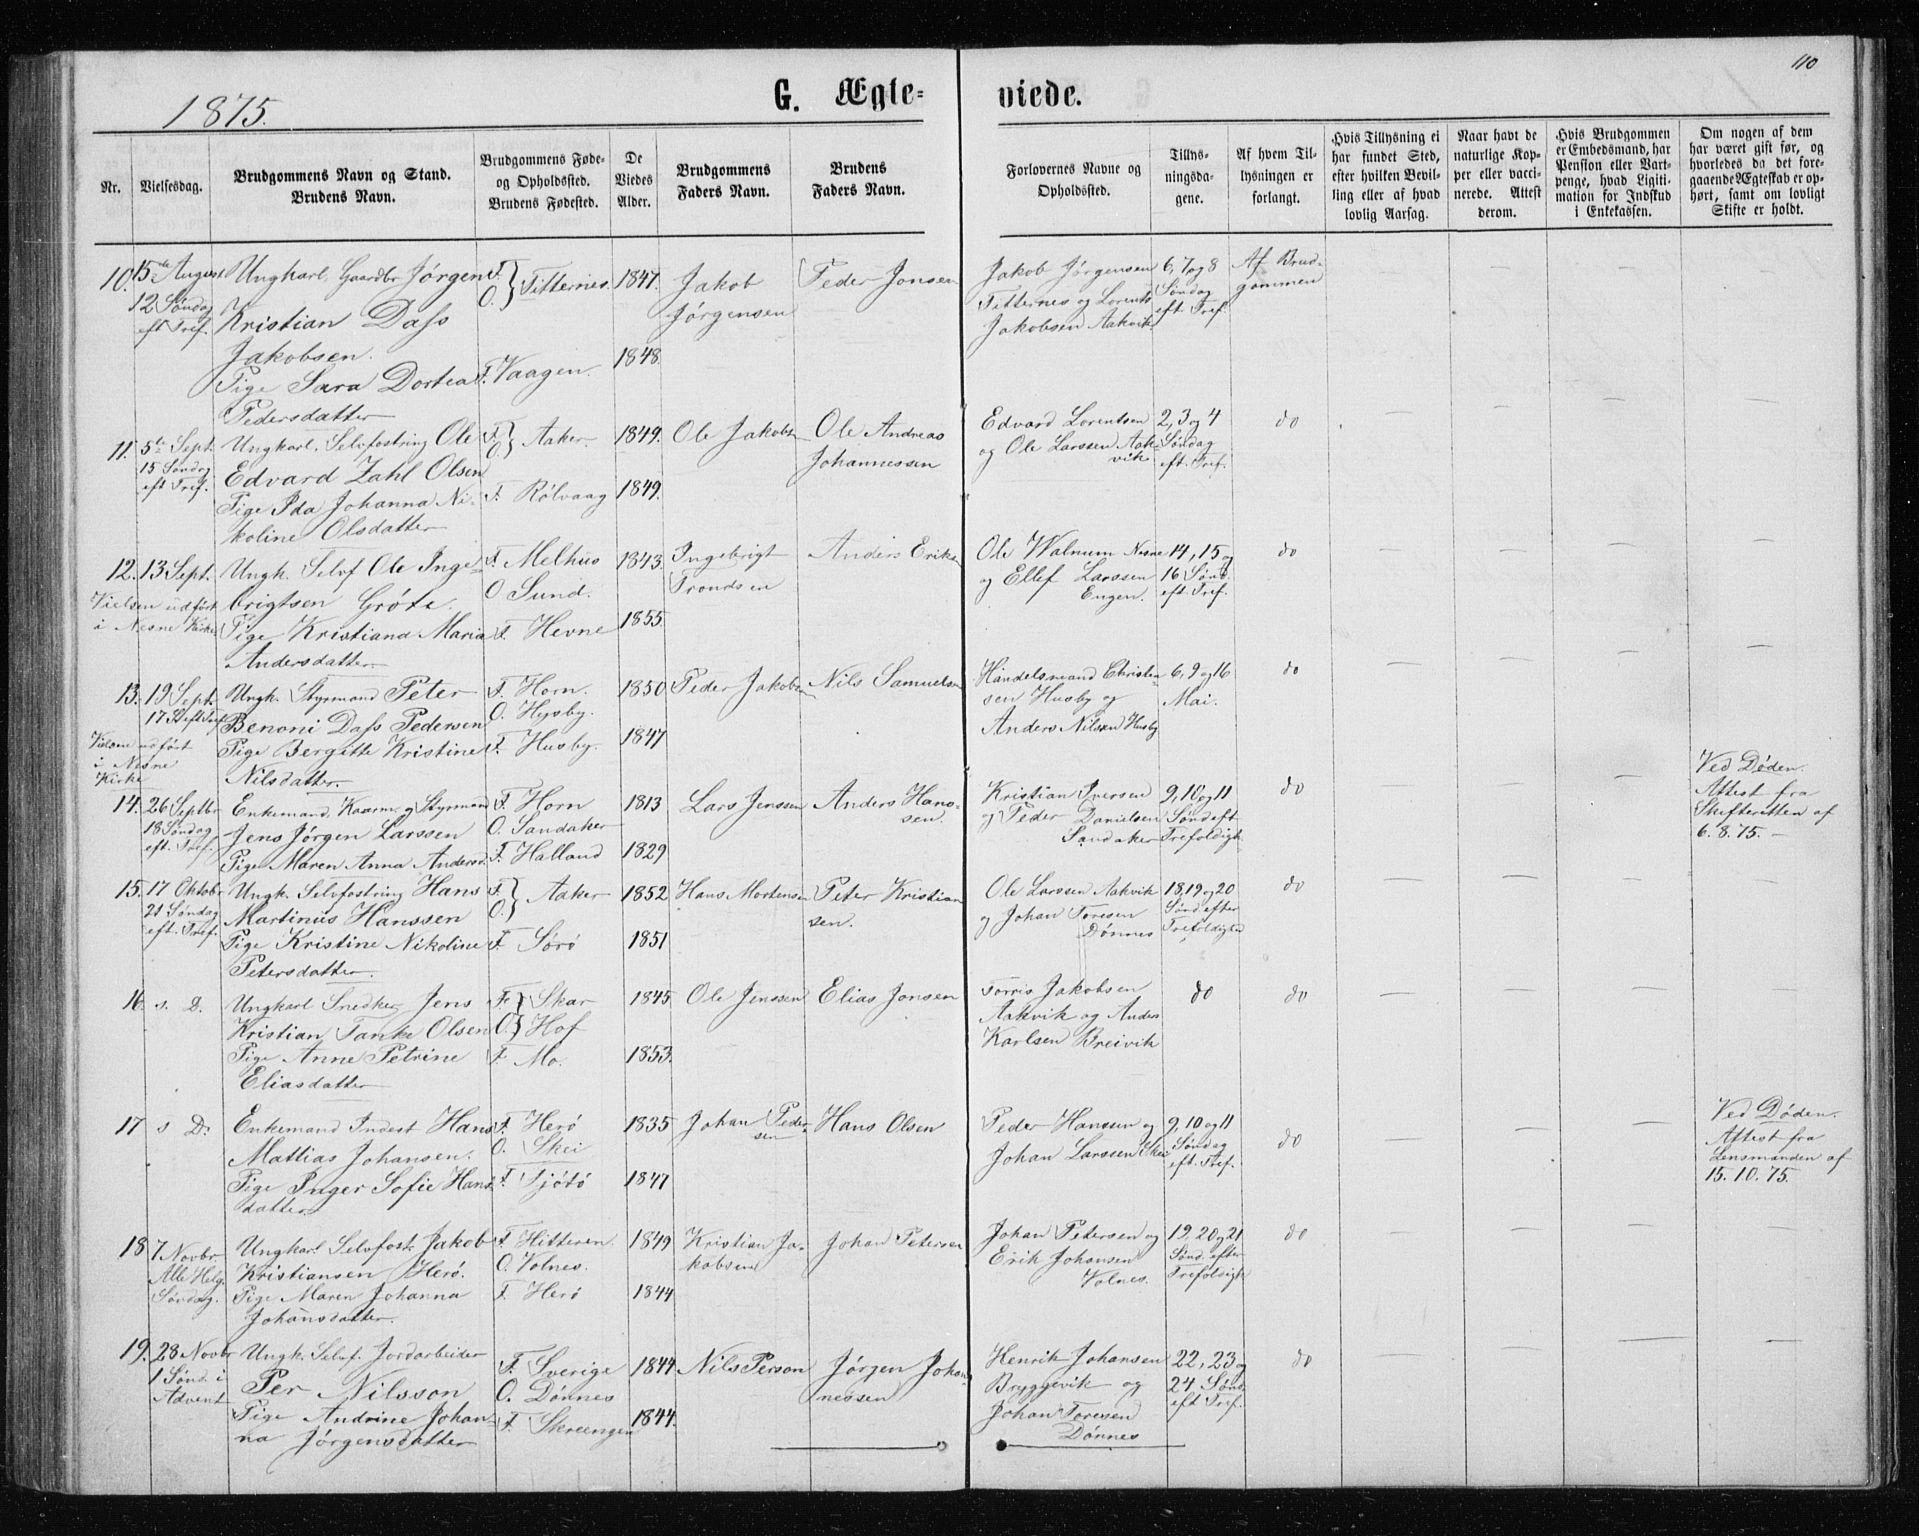 110
1875.
G. Ægte-
viede.
Nr.
Vielsesdag.
Brudgommens Navn og Stand.
Brudens Navn.
Brudgommens Føde-
og Opholdssted.
Brudens Fødested.
De
Viedes
Alder.
Brudgommens
Faders Navn.
Brudens
Faders Navn.
Forlovernes Navne og
Opholdssted.
Tillys-
ningsda-
gene.
Af hvem Til-
lysningen er
forlangt.
Hvis Tillysning ei
har fundet Sted,
efter hvilken Bevil-
ling eller af hvad
lovlig Aarsag.
Naar havt de
naturlige Kop-
per eller vacci-
nerede. Attest
derom.
Hvis Brudgommen
er Embedsmand, har
Pension eller Vart-
penge, hvad Ligiti-
mation for Indskud
i Enkekassen.
Om nogen af dem
har været gift før, og
hvorledes da det fore-
gaaende Ægteskab er op-
hørt, samt om lovligt
Skifte er holdt.
10.
15de August
12 Søndag
eft Tref.
Ungkarl, Gaardbr Jørgen
Kristian Dass
Jakobsen.
Pige Sara Dortea
Pedersdatter
F.
O. } Titternes.
F. Vaagen.
1847.
1848.
Jakob
Jørgensen
Peder Jonsen
Jakob Jørgensen
Titternes og Lorents
Jakobsen Aakvik
6, 7 og 8
Søndag
eft Tref.
Af Brud-
gommen
11.
5te Sept.
15 Søndag
eft Tref.
Ungkarl, Selvfostring Ole
Edvard Zahl Olsen
Pige Ida Johanna Ni-
koline Olsdatter
F.
O. } Aaker.
F. Rølvaag
1849.
1849.
Ole Jakobsen
Ole Andreas
Johannessen
Edvard Lorentsen
og Ole Larssen Aak-
vik
2, 3 og 4
Søndag
eft. Tref.
do
12.
13 Sept.
Vielsen udført
i Nesne Kirke
Ungk. Selvf Ole Inge-
brigtsen Gröte.
Pige Kristiana Maria
Andersdatter
F. Melhus
O Sund.
F. Hevne
1843.
1855.
Ingebrigt
Trondsen
Anders Eriksen
Ole Walnum Nesne
og Ellef Larssen
Engen.
14, 15 og
16 Sønd.
eft. Tref.
do
13.
19 Sept.
17 S eft Tref
Vielsen udført
i Nesne
Kirke
Ungk. Styrmand Peter
Benoni Dass Pedersen
Pige Bergitte Kristine
Nilsdatter
F. Horn.
O. Husby.
F. Husby.
1850
1847
Peder Jakobsen
Nils Samuelsen
Handelsmand Christen-
sen Husby og
Anders Nilssen Husby
6, 9 og 16
Mai.
do
14.
26 Septbr
18 Søndag
eft. Tref.
Enkemand, Kaarm. og Styrmand
Jens Jørgen Larssen
Pige Maren Anna Andersd.
F. Horn
O. Sandaker
F. Halland
1813
1829
Lars Jenssen
Anders Hans-
sen.
Kristian Iversen
og Peder Danielsen
Sandaker
9, 10 og 11
Sønd eft
Trefoldigh
do
Ved Døden.
Attest fra
Skifteretten af
6. 8. 75. –
15.
17 Oktobr
21 Søndag
eft. Tref.
Ungk. Selvfostring Hans
Martinus Hanssen
Pige Kristine Nikoline
Petersdatter
F.
O. } Aaker
F. Sørø
1852
1851
Hans Mortensen
Peter Kristian
sen.
Ole Larssen Aakvik
og Johan Toresen
Dønnes
18, 19 og 20
Sønd efter
Trefoldighed
do
16.
s. D.
Ungkarl Snedker Jens
Kristian Tanke Olsen
Pige Anne Petrine
Eliasdatter
F. } Skar
O. } Hof
F. Mo.
1845
1853.
Ole Jenssen
Elias Jonsen
Torris Jakobsen
Aakvik og Anders
Karlsen Breivik
do
do
17
s D.
Enkemand Inderst Hans
Mattias Johansen.
Pige Inger Sofie Hans
datter
F. Herø
O. Skei
F. Tjøtø
1835
1847
Johan Peder-
sen
Hans Olsen
Peder Hanssen og
Johan Larssen Skei
9, 10 og 11
Søndag
eft. Tref.
do
Ved Døden.
Attest fra
Lensmanden af
15. 10. 75.
18
7 Novbr
Alle Helg.
Søndag.
Ungkarl Selvfostr. Jakob
Kristiansen Herø.
Pige Maren Johanna
Johansdatter.
F. Hitteren.
O. Volnes.
F. Herø
1849
1844
Kristian Ja-
kobsen
Johan Petersen
Johan Petersen og
Erik Johansen
Volnes.
19, 20 og 21
Sønd. efter
Trefoldigh
do
19.
28 Novbr
1 Sønd i
Advent
Ungk. Selvf. Jordarbeider
Per Nilsson
Pige Andrine Johan-
na Jørgensdatter
F. Sverige
O. Dønnes
F. Skreengen
1844
1844.
Nils Person
Jørgen Johan-
nessen
Henrik Johansen
Bryggevik og
Johan Toresen
Dønnes
22, 23 og
24 Sønd
eft Tref.
do